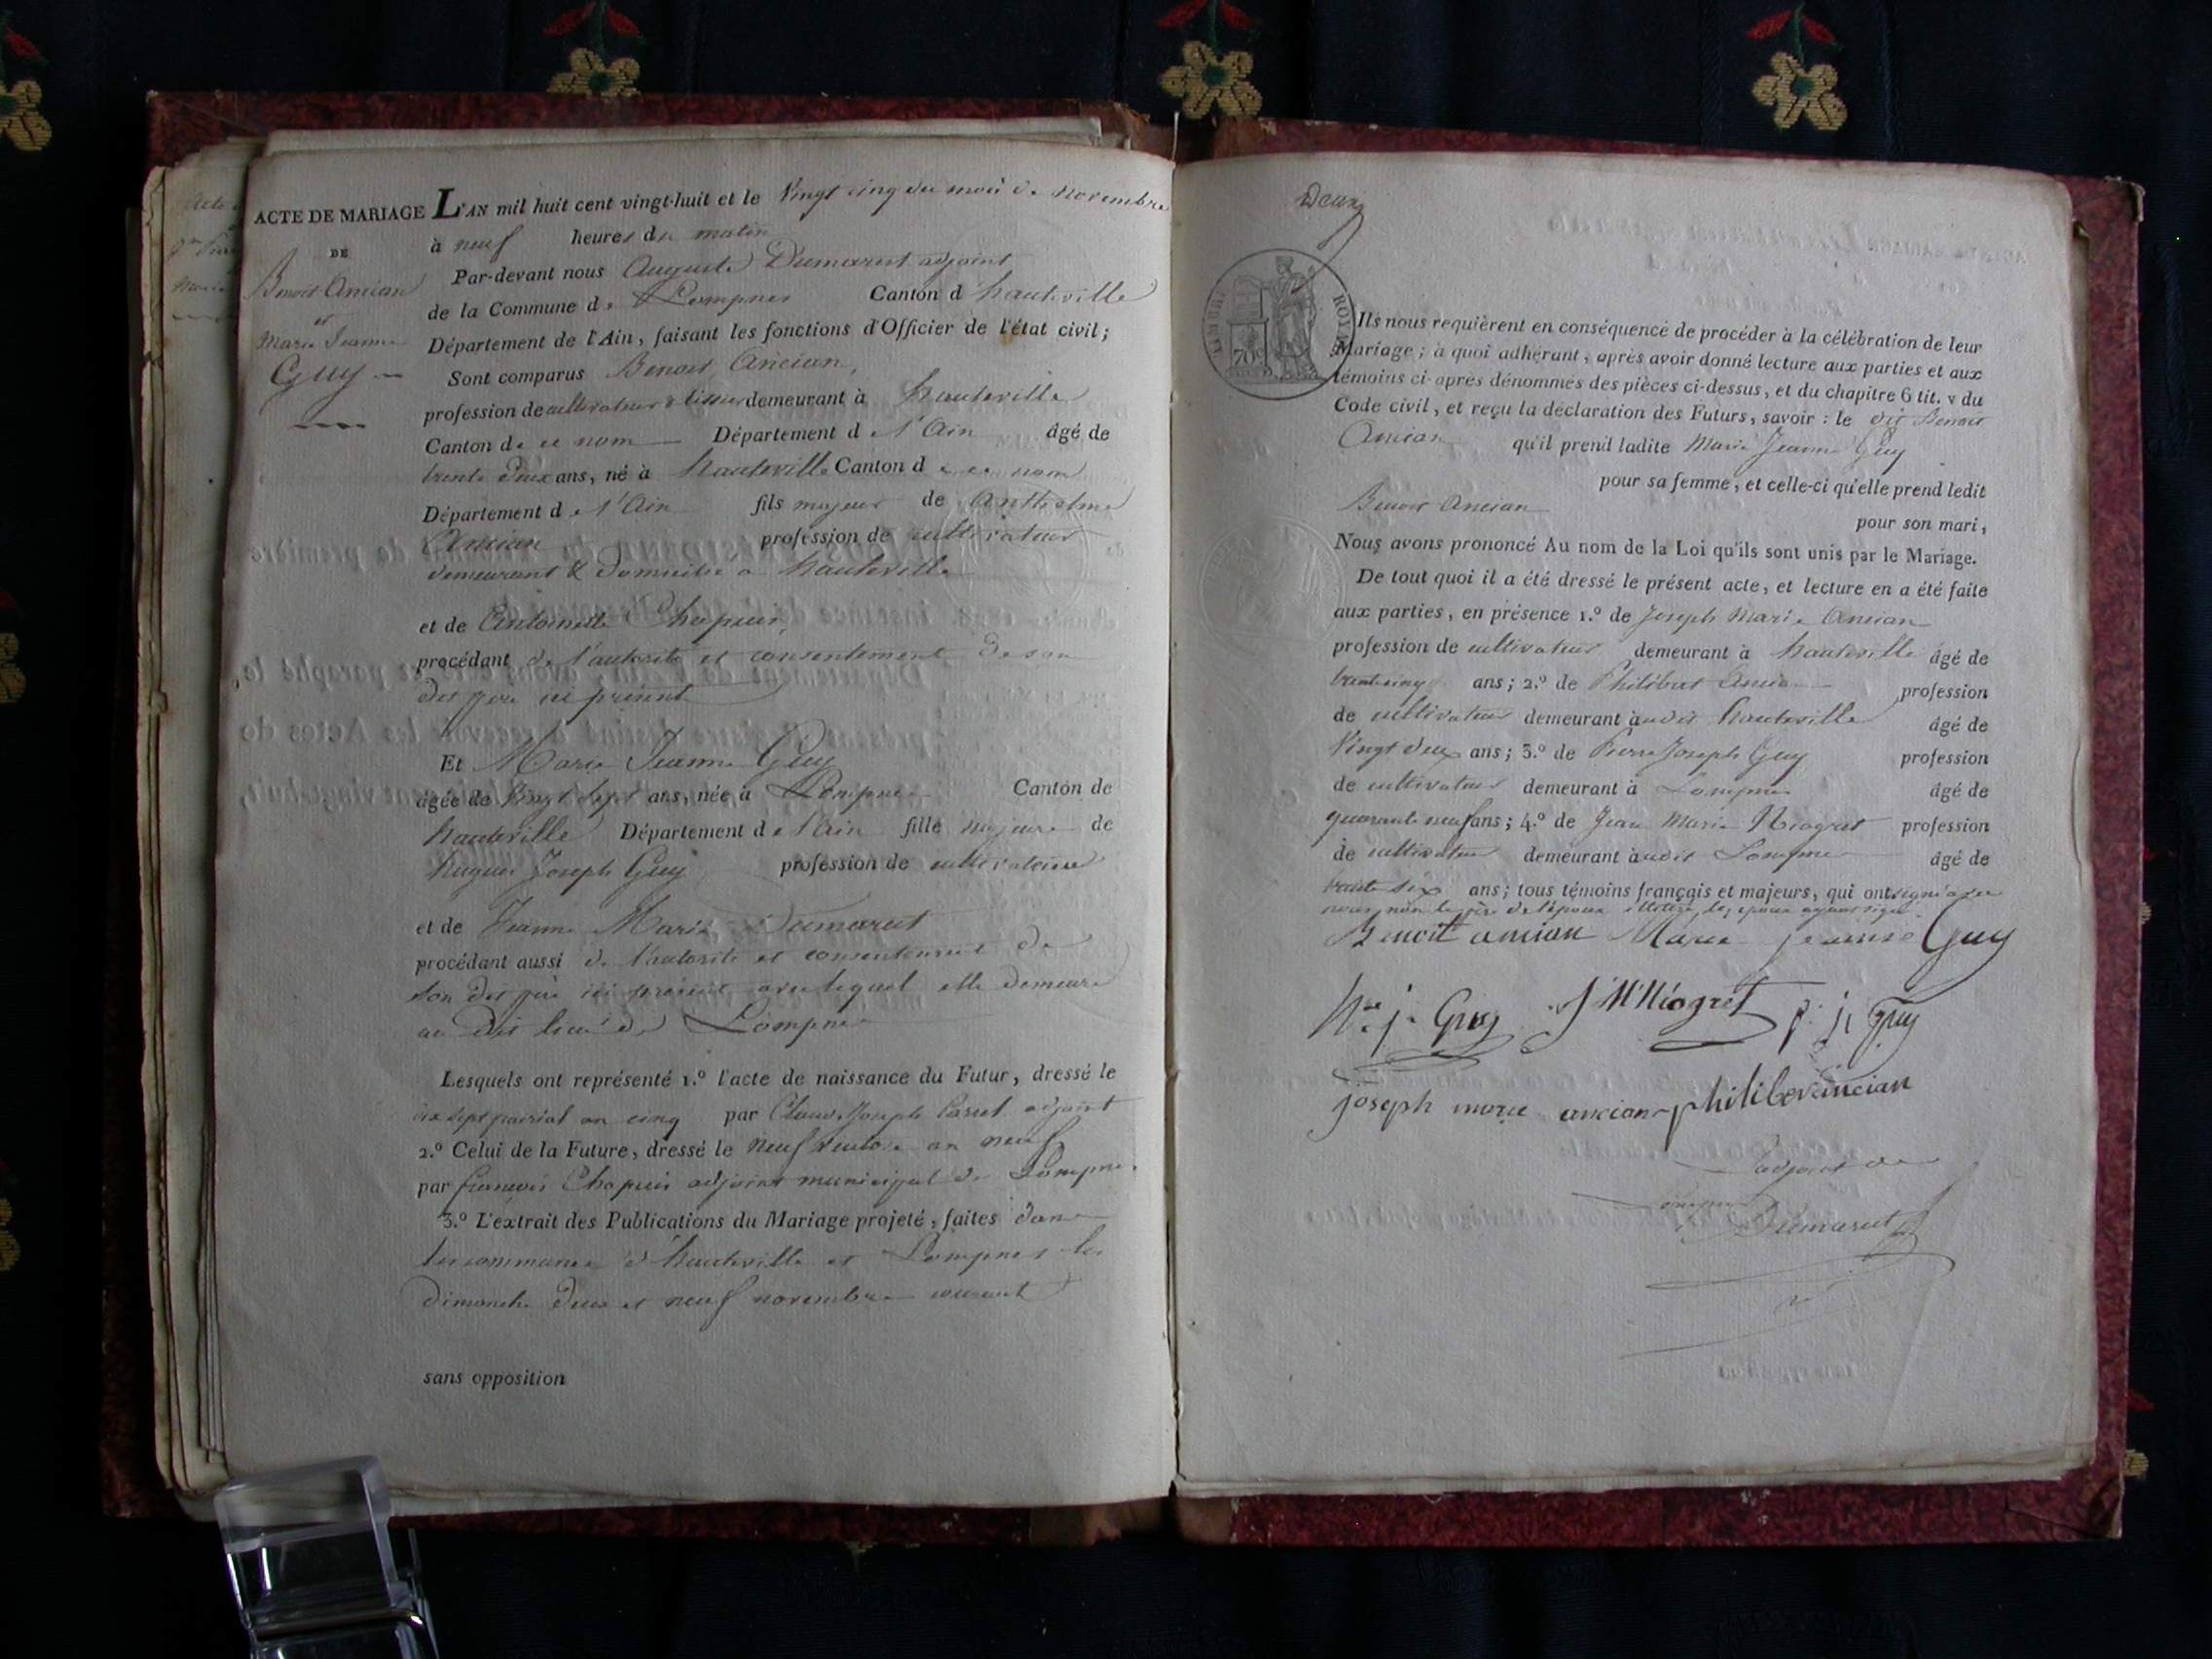 ACTE DE MARIAGE
DE
Benoit Ancian
et
Marie Jeanne
Guy
L'AN mil huit cent vingt-huit et le Vingt cinq du mois de novembre
à neuf heures du matin
Par-devant nous Auguste Dumarest adjoint
de la Commune de Lompnes Canton d'hauteville
Département de l'Ain, faisant les fonctions d'Officier de l'état civil;
Sont comparus Benoit Ancian,
profession de cultivateur & tissier demeurant à hauteville
Canton de ce nom Département de l'Ain âgé de
trente deux ans, né à hauteville Canton de ce nom
Département de l'Ain fils majeur de Anthelme
Ancian profession de cultivateur
demeurant & domicilié a hauteville
et de Antoinette Chapuis,
procédant de l'autorité et consentement de son
dit père ici présent
Et Marie Jeanne Guy
âgée de vingt sept ans, née à Lompnes Canton de
hauteville Département de l'Ain fille majeure de
hugues Joseph Guy profession de
et de Jeanne Marie Dumarest
procédant aussi de l'autorité et consentement de
son dit père ici présent avec lequel elle demeure
au dit lieu de Lompnes
Lesquels ont représenté 1.º l'acte de naissance du Futur, dressé le
dix sept prairial an cinq par Claude Joseph adjoint
2.º Celui de la Future, dressé le neuf ventose an neuf
par françois Chapuis adjoint municipal de Lompnes
3.º L'extrait des Publications du Mariage projeté, faites dans
les communes d'hauteville et Lompnes les
dimanche deux et neuf novembre courant
sans opposition
Deux
TIMBRE ROYAL
70c
Ils nous requièrent en conséquence de procéder à la célébration de leur
Mariage; à quoi adhérant, après avoir donné lecture aux parties et aux
témoins ci-après dénommés des pièces ci-dessus, et du chapitre 6 tit. v du
Code civil, et reçu la déclaration des Futurs, savoir: le dit Benoit
Ancian qu'il prend ladite Marie Jeanne Guy
pour sa femme, et celle-ci qu'elle prend ledit
Benoit Ancian
pour son mari,
Nous avons prononcé Au nom de la Loi qu'ils sont unis par le Mariage.
De tout quoi il a été dressé le présent acte, et lecture en a été faite
aux parties, en présence 1.º de Joseph Marie Ancian
profession de cultivateur demeurant à hauteville âgé de
trente cinq ans; 2.º de Philibert Ancian profession
de cultivateur demeurant à udit hauteville âgé de
Vingt deux ans; 3.º de Pierre Joseph Guy profession
de cultivateur demeurant à Lompnes âgé de
quarante neuf ans; 4.º de Jean Marie Niogret profession
de cultivateur demeurant à udit Lompnes âgé de
trente six ans; tous témoins français et majeurs, qui ont signé avec
nous, non le père de l'époux illitéré, les époux ayant signé
Benoit ancian Marie jeanne Guy
h.e j. Guy J M Niogret p. j. Guy
joseph marie ancian philibert ancian
adjoint de
Lompnes
Dumarest